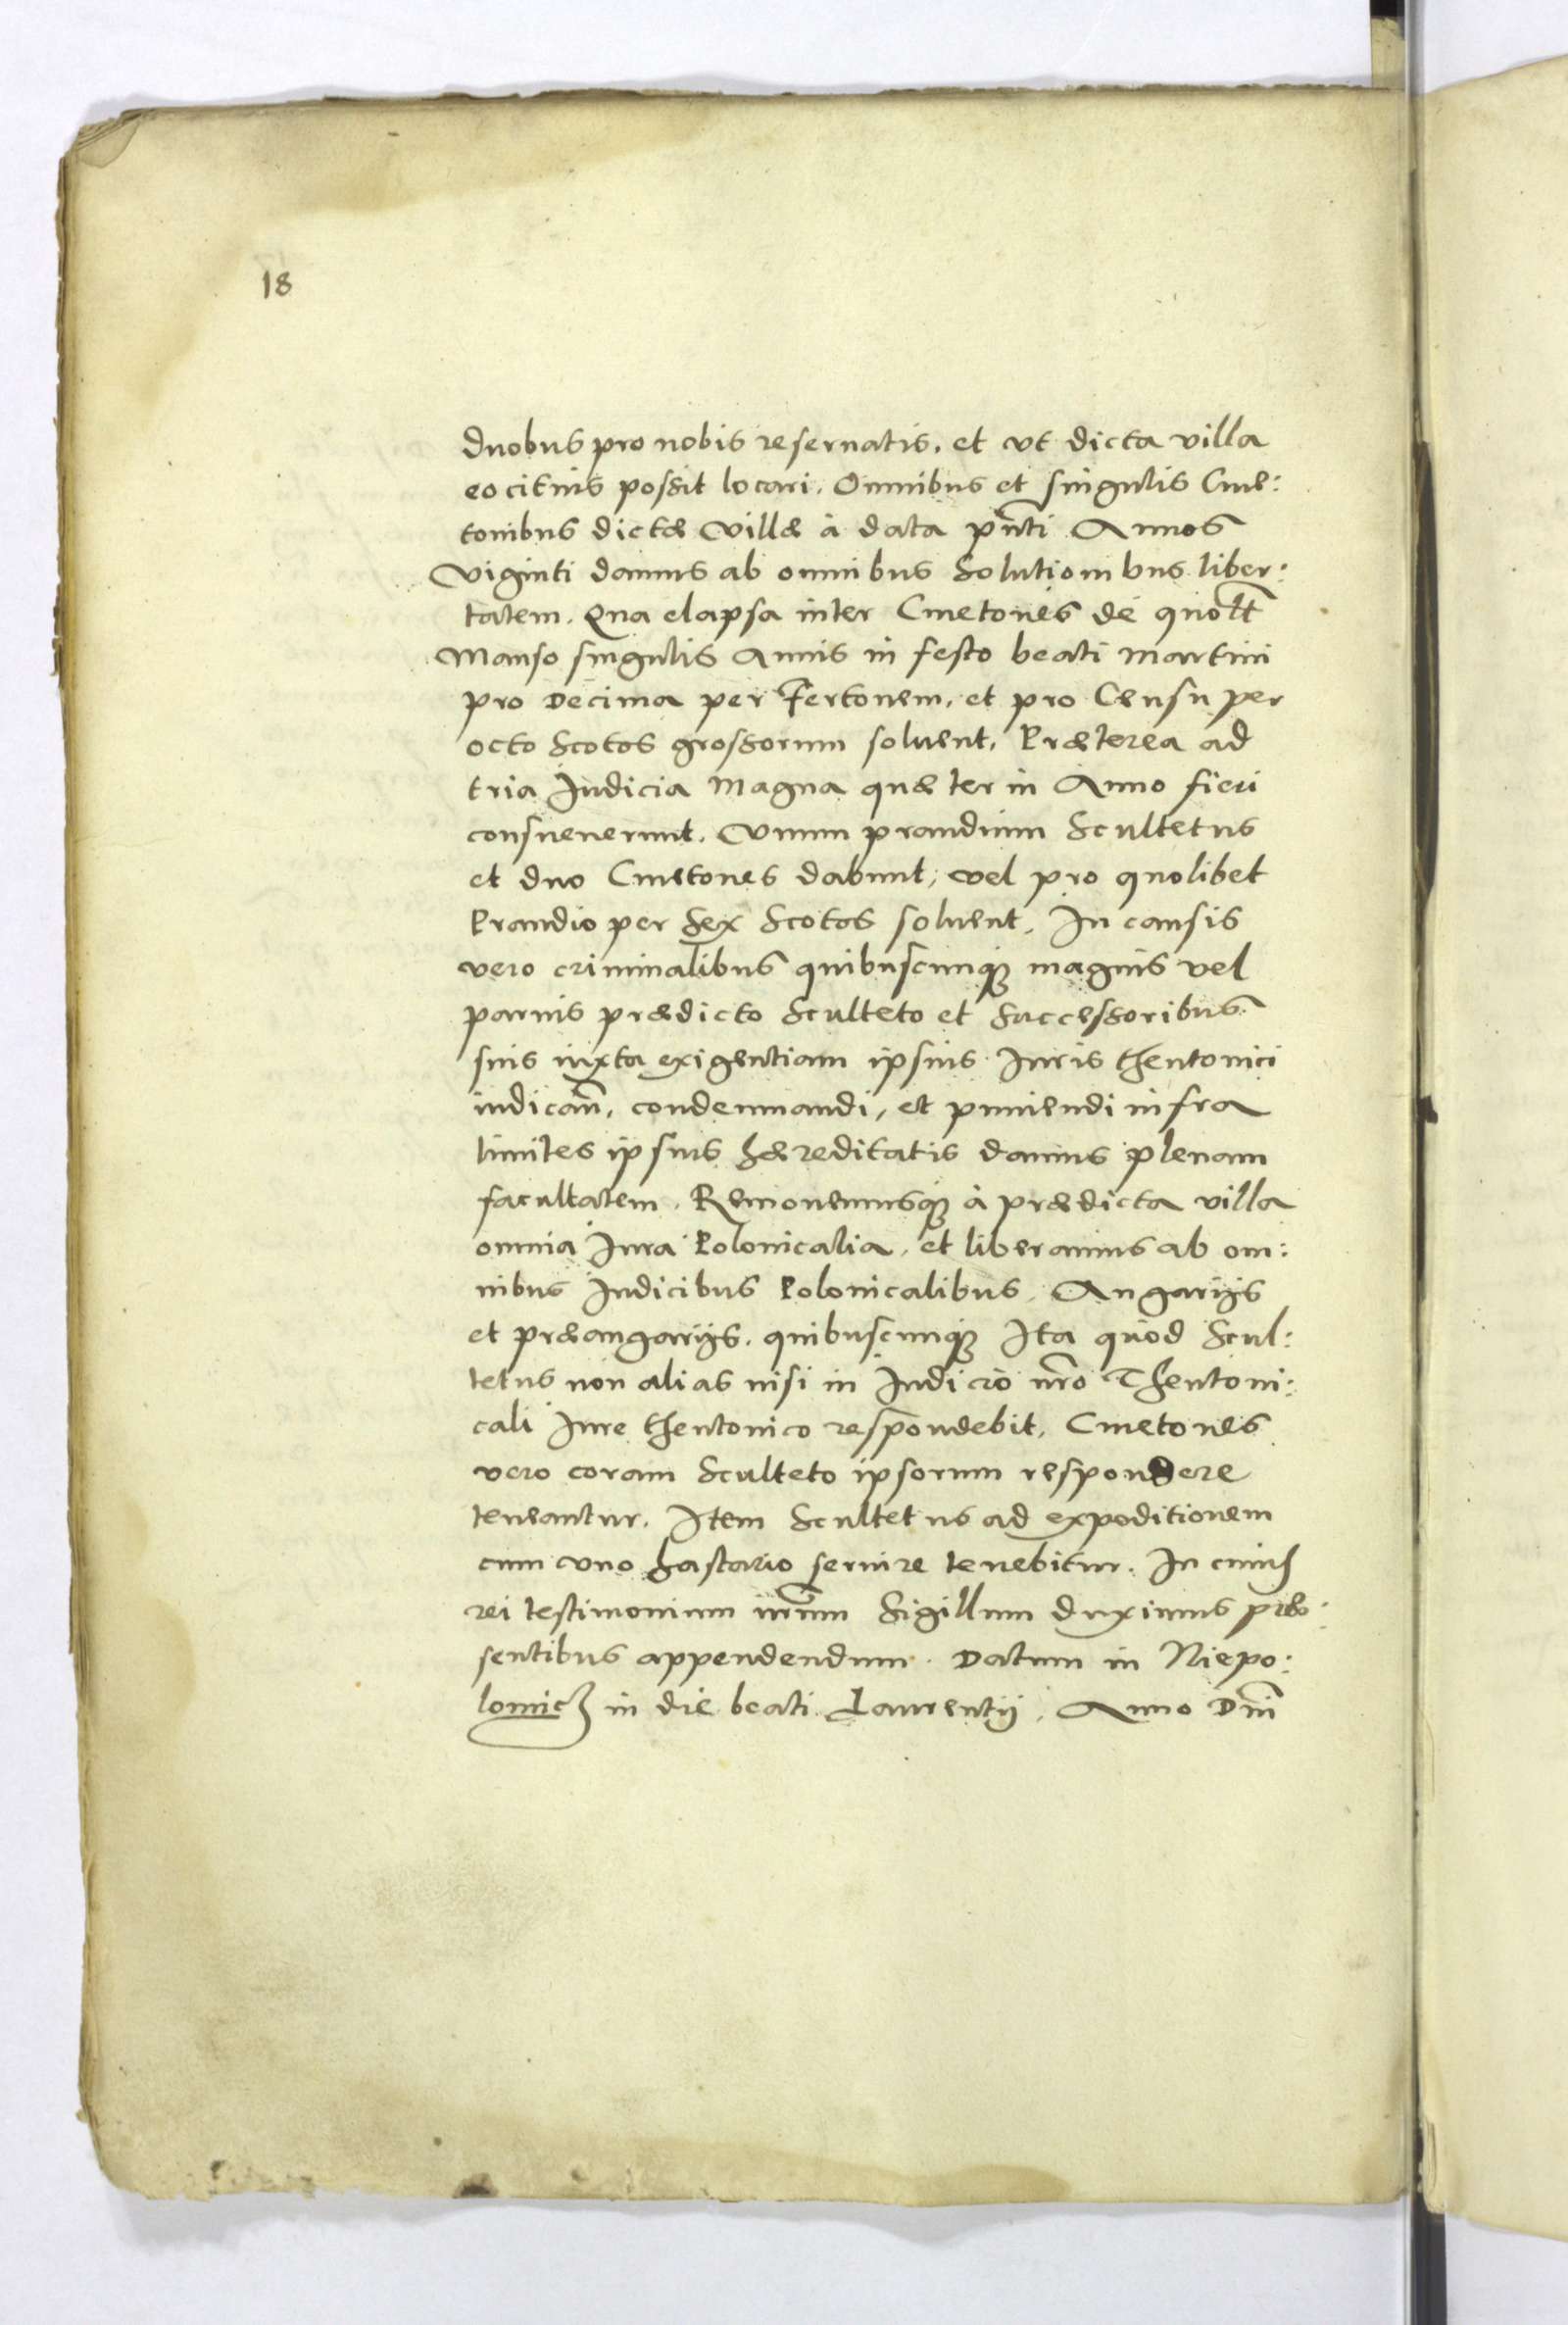 18
duobus pro nobis reseruatis, et vt dicta villa
eo citius possit locari, Omnibus et singulis Cme:
tonibus dictæ Villæ à data pn̄ti Annos
Viginti damus ab omnibus Solutionibus liber:
tatem. Qua elapsa inter Cmetones de quolt̄
Manso singulis Annis in festo beati Martini
pro Decima per Fertonem, et pro Censu per
octo Scotos grossorum soluent, Præterea ad
tria Judicia Magna quæ ter in Anno fieri
consueuerunt. Vnum prandium Scultetus
et duo Cmetones dabunt, vel pro quolibet
Prandio per Sex Scotos soluent, In causis
vero criminalibus quibuscunqꝫ magnis vel
paruis prædicto Sculteto et Successoribus
suis iuxta exigentiam ipsius Juris theutonici
iudican̄, condemnandi, et puniendi infra
limites ipsius hæreditatis damus plenam
facultatem. Remouemusqꝫ à prædicta villa
omnia Jura Polonicalia, et liberamus ab om:
nibus Judicibus Polonicalibus, Angarijs
et præangarijs, quibuscunqꝫ Ita quod Scul:
tetus non alias nisi in Judicio nr̄o Theutoni:
cali Jure theutonico respondebit, Cmetones
vero coram Sculteto ipsorum respondere
teneantur. Item Scultetus ad expeditionem
cum vno hastario seruire tenebitur. In cuius
rei testimonium nr̄um Sigillum duximus præ:
sentibus appendendum. Datum in Niepo:
lomicz in die beati Laurentij, Anno Dn̄i